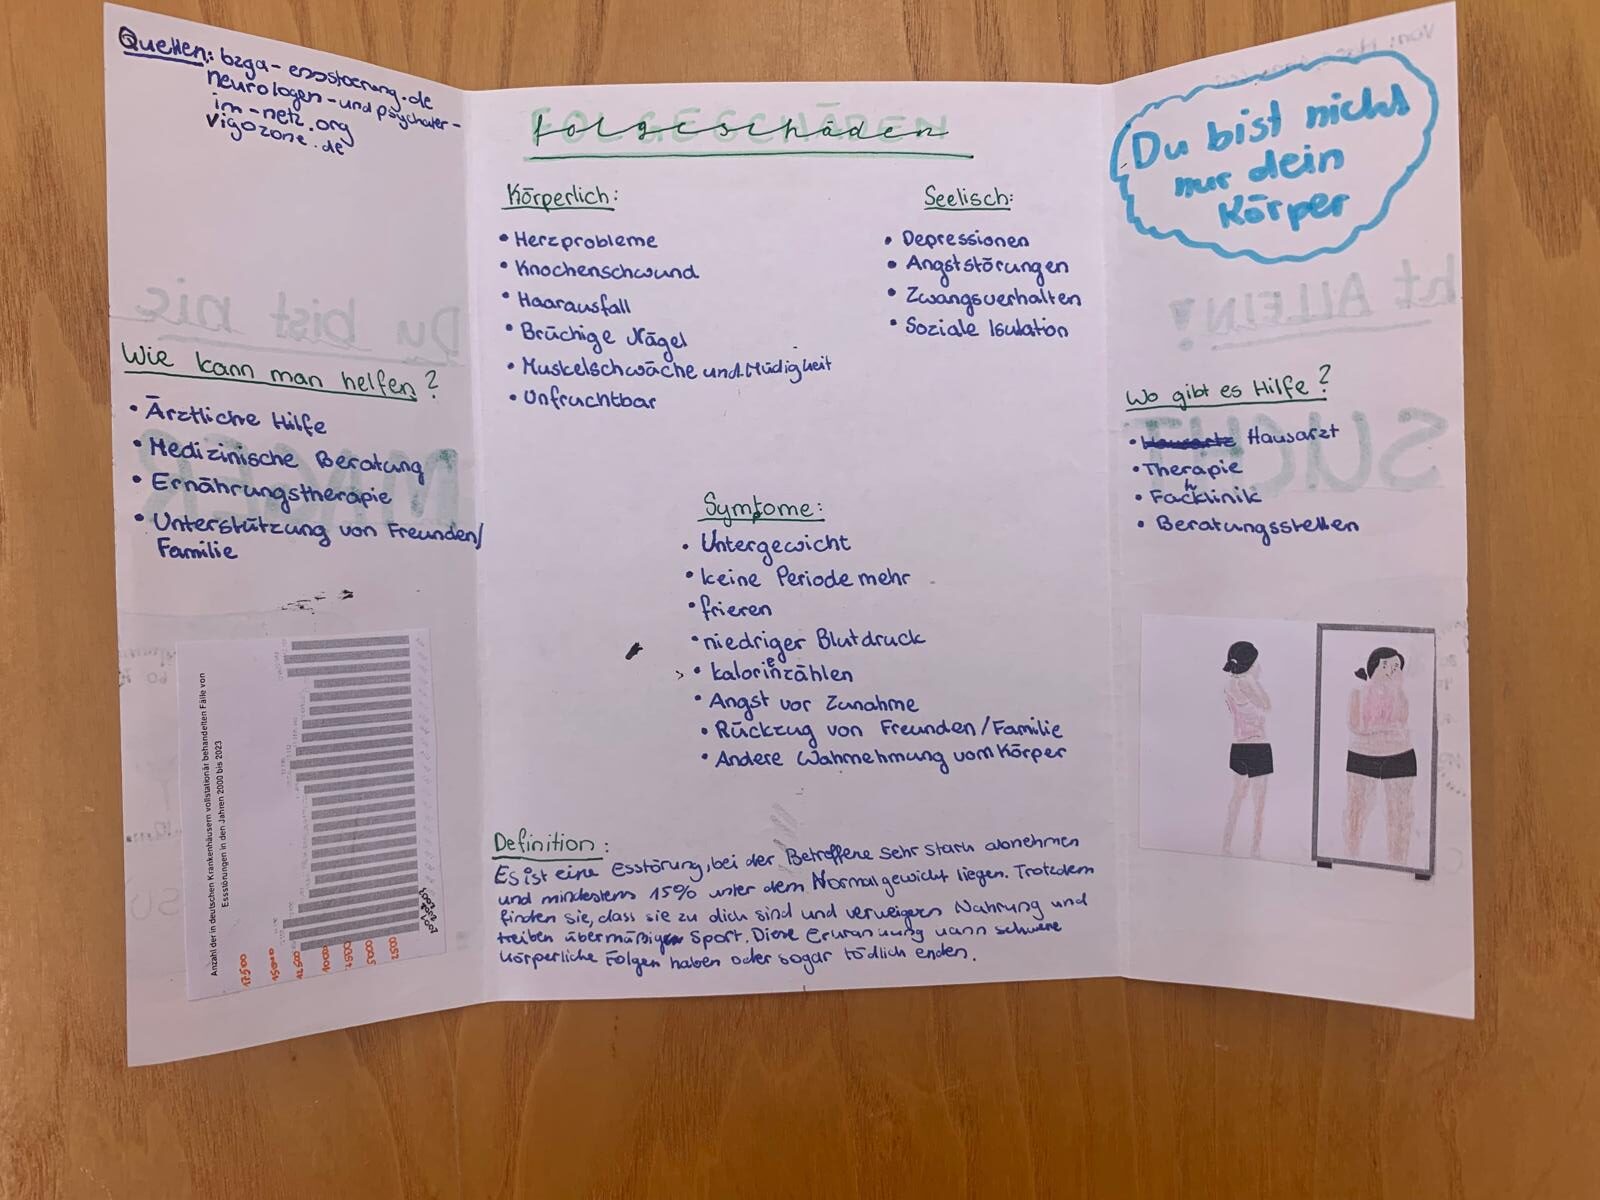 Quellen: bzga-essstoerung.de
neurologen-und psychater-
im-netz.org
vigozone.de
Wie kann man helfen?
• Ärztliche Hilfe
• Medizinische Beratung
• Ernährungstherapie
• Unterstützung von Freunden/
Familie
Anzahl der in deutschen Krankenhäusern vollstationär behandelten Fälle von
Essstörungen in den Jahren 2000 bis 2023
17500
15000
12500
5000
2500
Folgeschäden
Körperlich:
• Herzprobleme
• Knochenschwund
• Haarausfall
• Brüchige Nägel
• Muskelschwäche und Müdigkeit
• Unfruchtbar
Seelisch:
• Depressionen
• Angststörungen
• Zwangsverhalten
• Soziale Isulation
Symptome:
• Untergewicht
• keine Periode mehr
• frieren
• niedriger Blutdruck
• kalorienzählen
• Angst vor Zunahme
• Rückzug von Freunden/Familie
• Andere Wahrnehmung vom Körper
Definition:
Es ist eine Esstörung, bei der Betroffene sehr stark abnehmen
und mindestens 15% unter dem Normalgewicht liegen. Trotzdem
finden sie, dass sie zu dick sind und verweigern Nahrung und
treiben übermäßigen Sport. Diese Erkrankung kann schwere
körperliche Folgen haben oder sogar tödlich enden.
Du bist nicht
nur dein
Körper
Wo gibt es Hilfe?
• Hausarzt
• Therapie
• Fachklinik
• Beratungsstellen